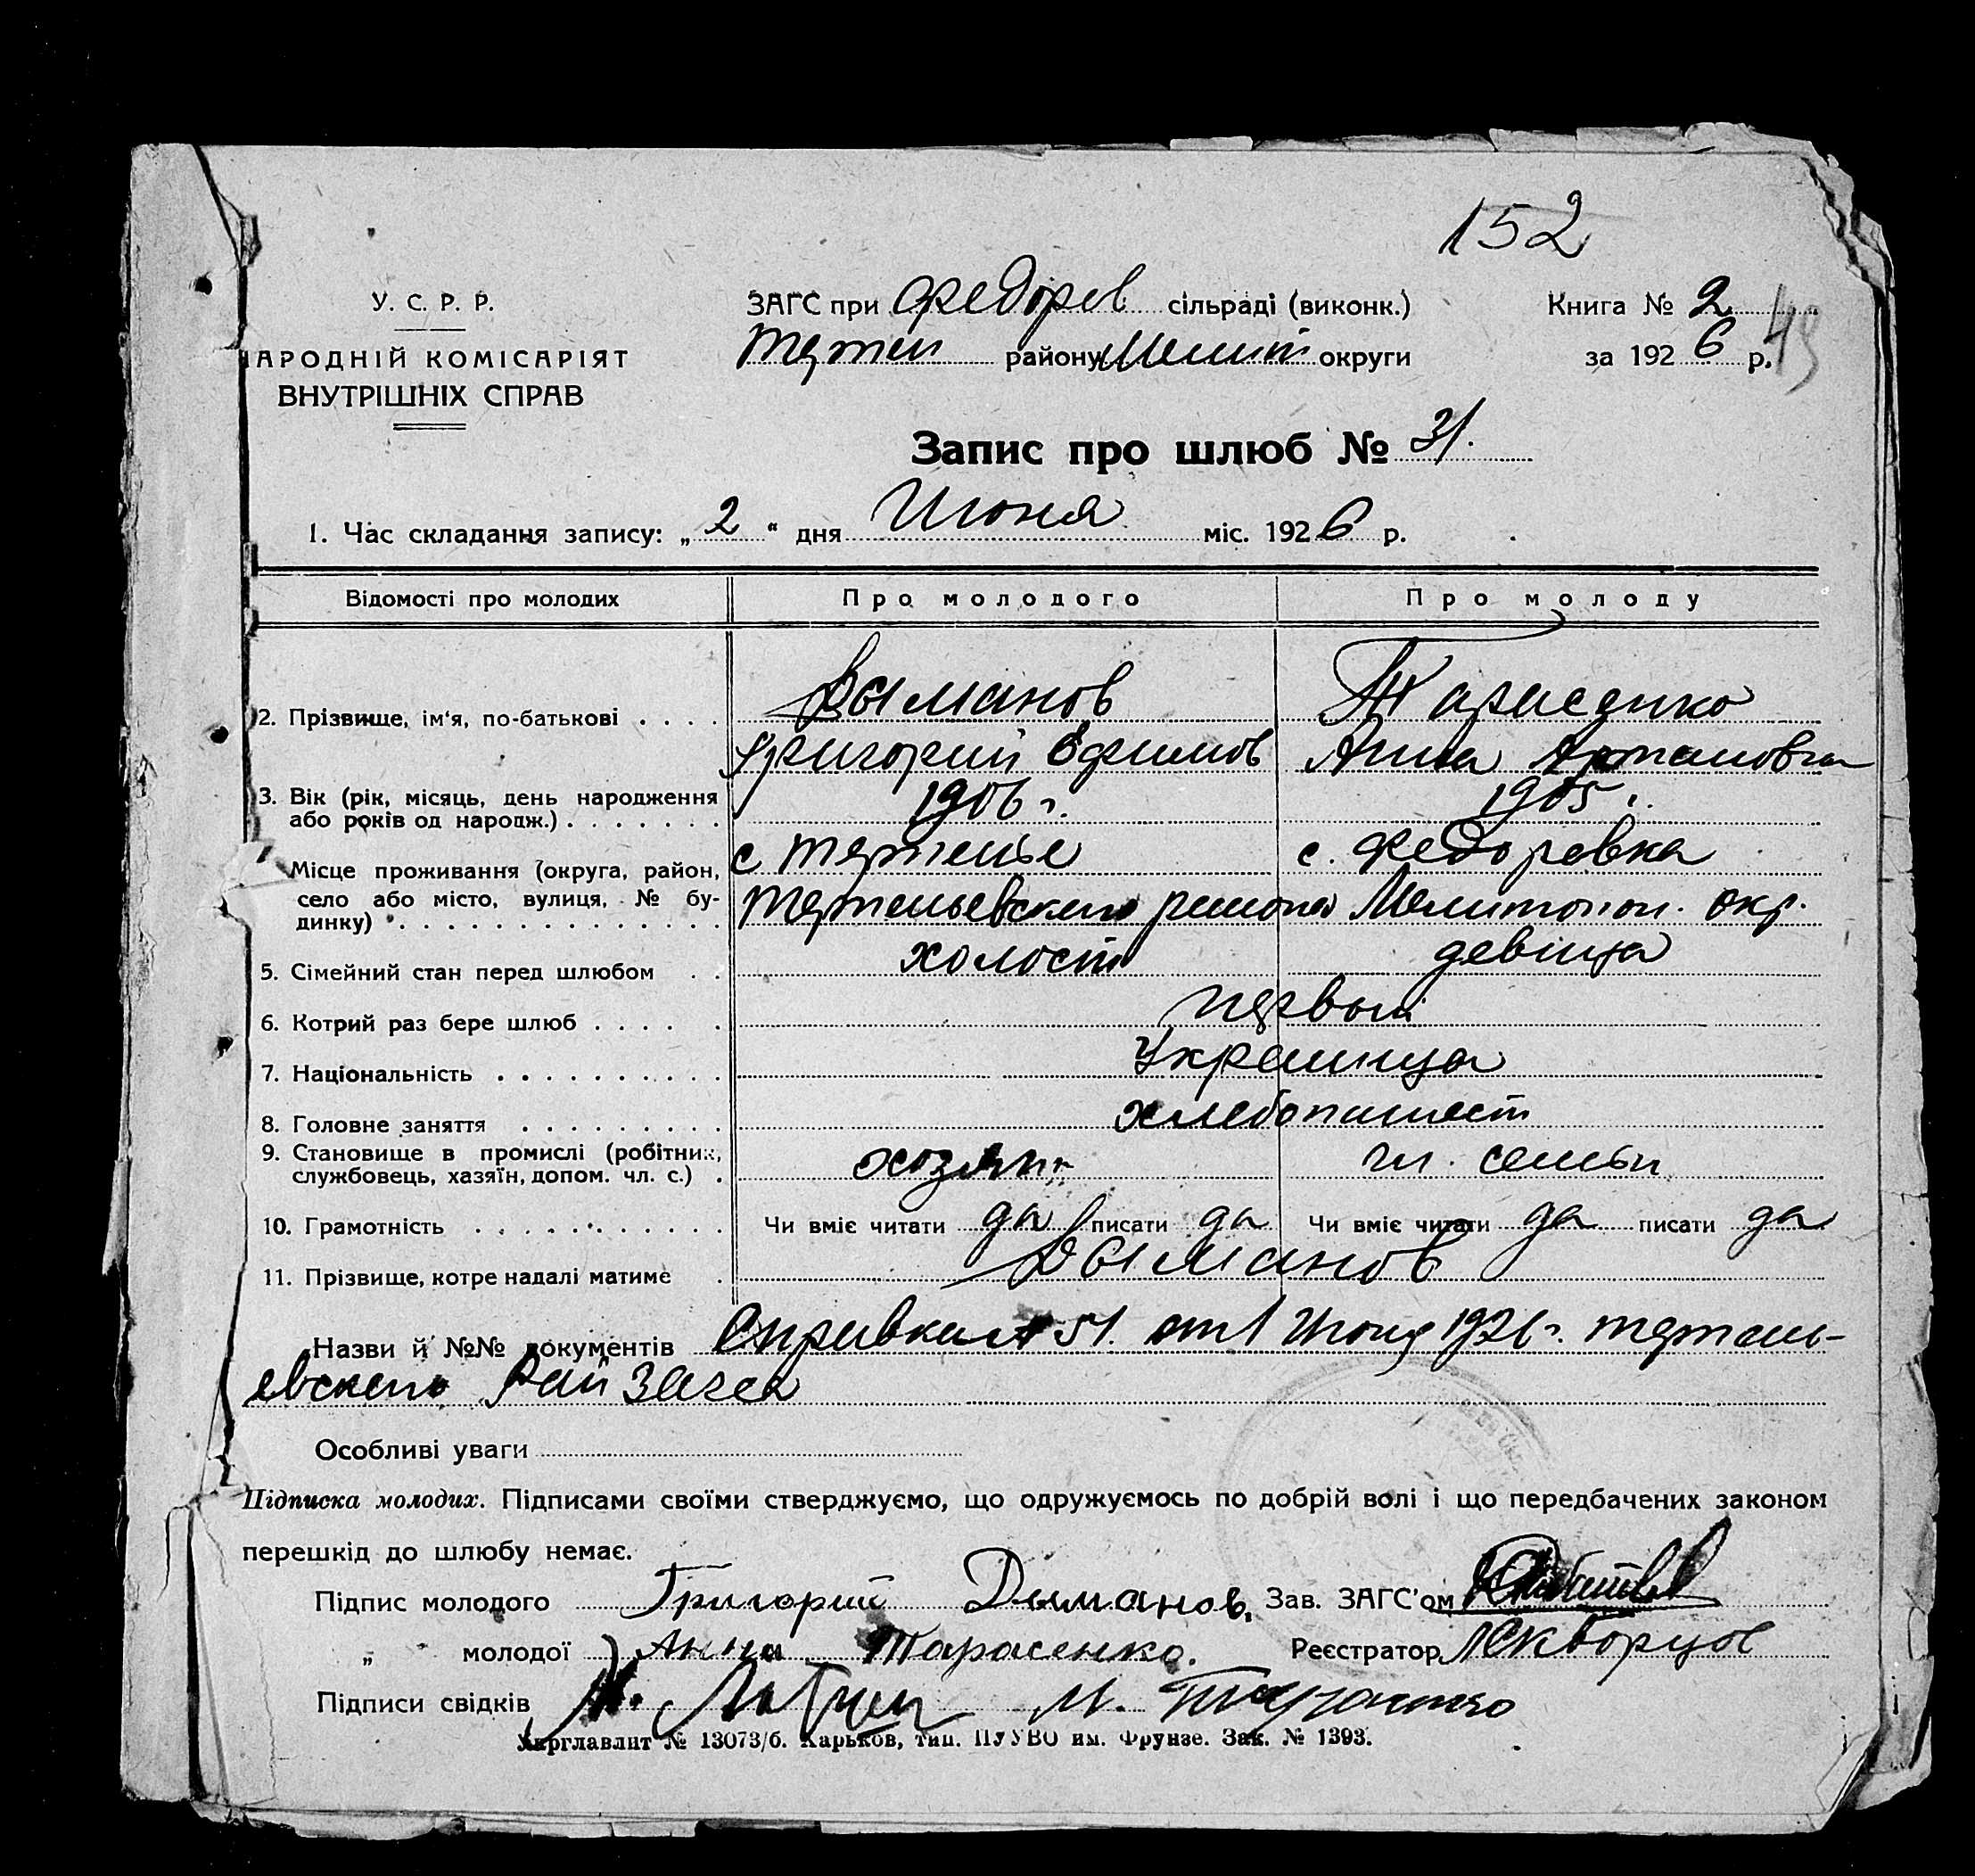 152
У. С. Р. Р.
АРОДНІЙ КОМІСАРІЯТ
ВНУТРІШНІХ СПРАВ
ЗАГС при Федоров сільраді (виконк.)
району Мелит округи
Книга № 2
за 1926 р.
Запис про шлюб № 31.
1. Час складання запису: „2“ дня Июня міс. 1926 р.
Відомості про молодих Про молодого Про молоду
2. Прізвище, ім'я, по-батькові . . . . Дыманов Тарасенко
Григорий Ефимов Анна
3. Вік (рік, місяць, день народження
або років од народж.) . . . . . . . 1906 г. 1905 г.
Місце проживання (округа, район,
село або місто, вулиця, № бу-
динку) . . . . . . . . . . . . . . .
с с. Федоровка
района Мелитопол. окр.
5. Сімейний стан перед шлюбом . . холост девица
6. Котрий раз бере шлюб . . . . . первый
7. Національність . . . . . . . . . . Украинца
8. Головне заняття . . . . . . . . . хлебопашест
9. Становище в промислі (робітник,
службовець, хазяїн, допом. чл. с.) . хозяин чл. семьи
10. Грамотність . . . . . . . . . . Чи вміє читати да писати да Чи вміє читати да писати да
11. Прізвище, котре надалі матиме . Дыманов
Назви й №№ документів Справка № 51. от 1 Июня 1926 г.
евского Рай Загса
Особливі уваги
Підписка молодих. Підписами своїми стверджуємо, що одружуємось по добрій волі і що передбачених законом
перешкід до шлюбу немає.
Підпис молодого Григорий Дыманов. Зав. ЗАГС'ом
„ молодої Анна Тарасенко. Реєстратор Скворцов
Підписи свідків М.
Укрглавлит № 13073/б. Харьков, тип. ПУУВО им. Фрунзе. Зак. № 1393.